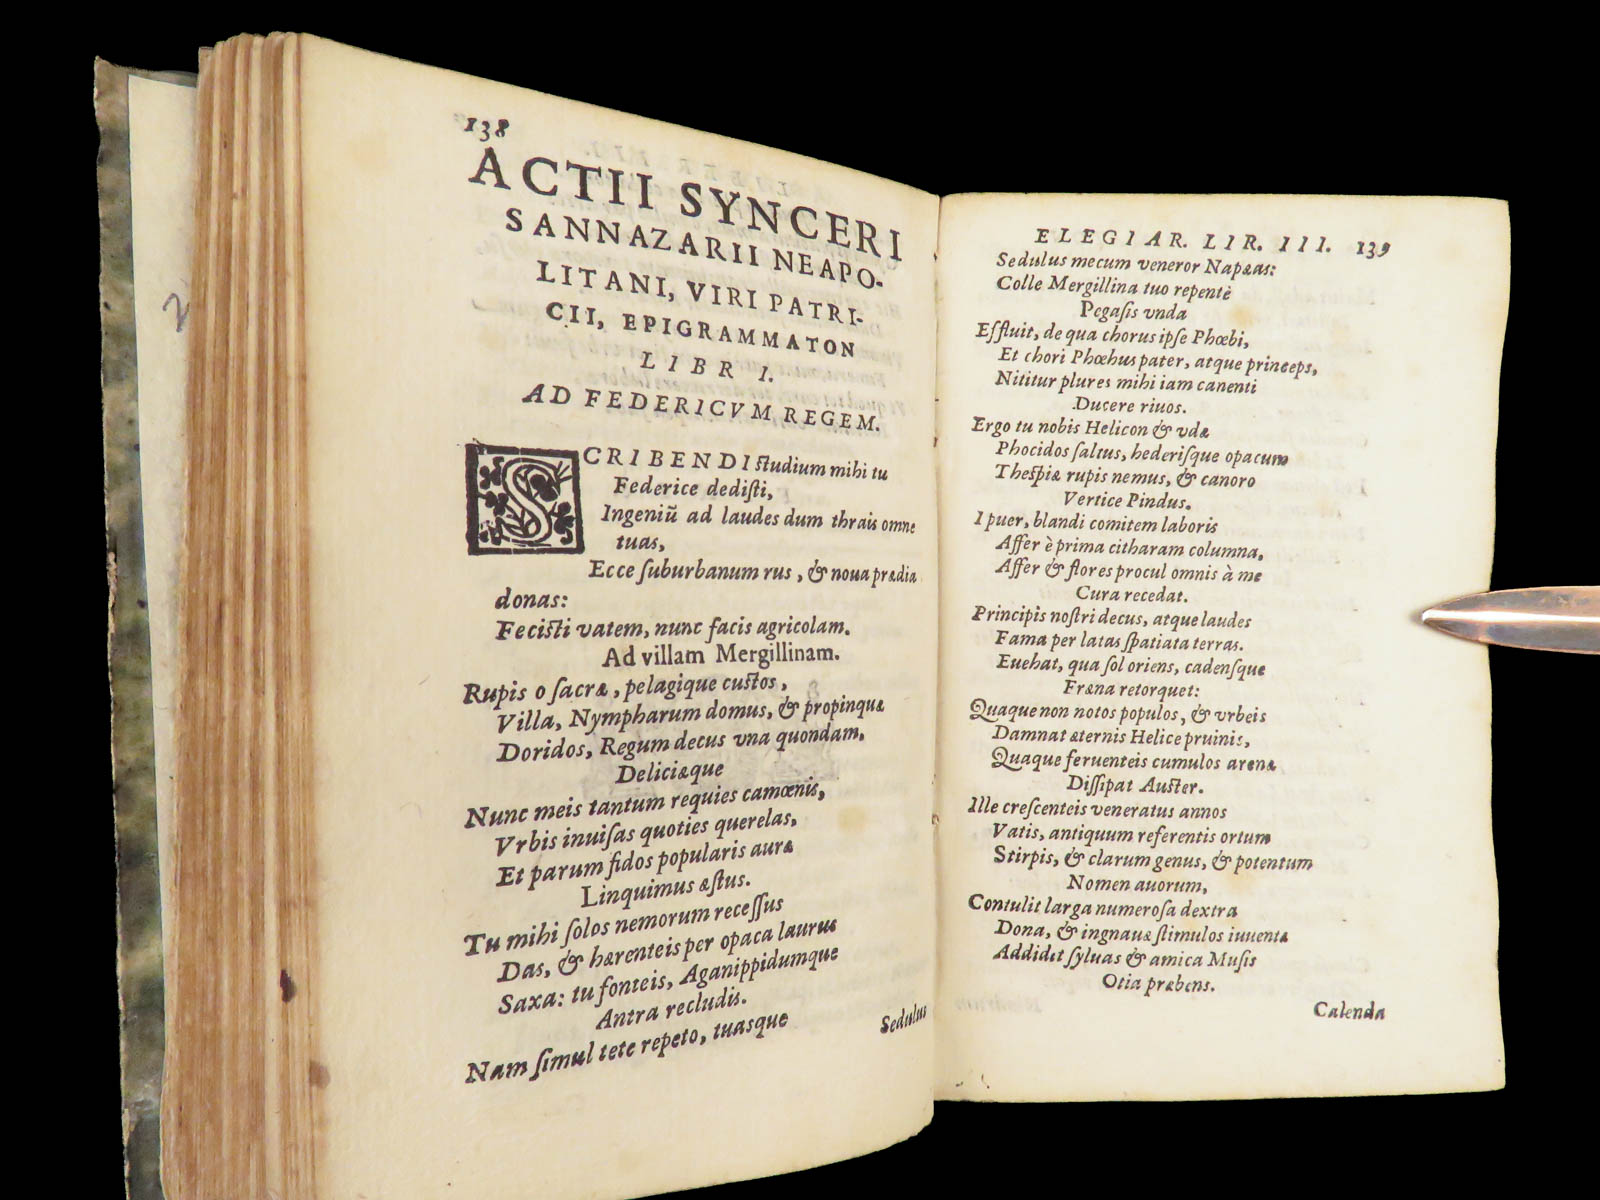 138
ACTII SYNCERI
SANNAZARII NEAPO-
LITANI, VIRI PATRI-
CII, EPIGRAMMATON
LIBR I.
AD FEDERICVM REGEM.
SCRIBENDI ſtudium mihi tu
Federice dediſti,
Ingeniũ ad laudes dum thrais omne
tuas,
Ecce ſuburbanum rus, & noua prædia
donas:
Feciſti vatem, nunc facis agricolam.
Ad villam Mergillinam.
Rupis o ſacræ, pelagique cuſtos,
Villa, Nympharum domus, & propinquæ
Doridos, Regum decus vna quondam,
Deliciæque
Nunc meis tantum requies camœnis,
Vrbis inuiſas quoties querelas,
Et parum fidos popularis auræ
Linquimus æſtus.
Tu mihi ſolos nemorum receſſus
Das, & hærenteis per opaca laurus
Saxa: tu fonteis, Aganippidumque
Antra recludis.
Nam ſimul tete repeto, tuasque
Sedulus
ELEGIAR. LIR. III. 139
Sedulus mecum veneror Napæas:
Colle Mergillina tuo repentè
Pegaſis vnda
Effluit, de qua chorus ipſe Phœbi,
Et chori Phœhus pater, atque princeps,
Nititur plures mihi iam canenti
Ducere riuos.
Ergo tu nobis Helicon & vdæ
Phocidos ſaltus, hederiſque opacum
Theſpiæ rupis nemus, & canoro
Vertice Pindus.
I puer, blandi comitem laboris
Affer è prima citharam columna,
Affer & flores procul omnis à me
Cura recedat.
Principis noſtri decus, atque laudes
Fama per latas ſpatiata terras.
Euehat, qua ſol oriens, cadenſque
Fræna retorquet:
Quaque non notos populos, & vrbeis
Damnat æternis Helice pruinis,
Quaque feruenteis cumulos arenæ
Diſſipat Auſter.
Ille creſcenteis veneratus annos
Vatis, antiquum referentis ortum
Stirpis, & clarum genus, & potentum
Nomen auorum,
Contulit larga numeroſa dextra
Dona, & ingnauæ ſtimulos iuuentæ
Addidit ſyluas & amica Muſis
Otia præbens.
Calenda